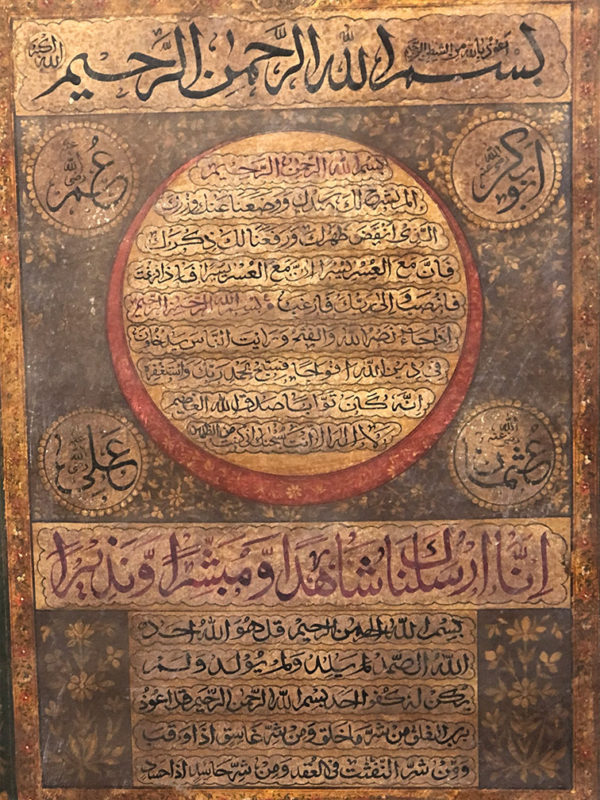 اعوذ بالله من الشيطان الرجيم
بِسْمِ اللهِ الرَّحْمٰنِ الرَّحِيمِ
ابو بكر
عُمر
بسم الله الرحمن الرحيم
الم نشرح لك صدرك ووضعنا عنك وزرك
الذي انقض ظهرك ورفعنا لك ذكرك
فان مع العسر يسرا ان مع العسر يسرا فاذا فرغت
فانصب والى ربك فارغب بسم الله الرحمن الرحيم
اذا جاء نصر الله والفتح ورايت الناس يدخلون
في دين الله افواجا فسبح بحمد ربك واستغفره
انه كان توابا صدق الله العظيم
لا اله الا انت سبحانك اني كنت من الظالمين
عثمان
علي
اِنَّا ارسلناك شاهدا وَّمبشّرا وَّنذيرا
بسم الله الرحمن الرحيم قل هو الله احد
الله الصمد لم يلد ولم يولد ولم
يكن له كفوا احد بسم الله الرحمن الرحيم قل اعوذ
برب الفلق من شر ما خلق ومن شر غاسق اذا وقب
ومن شر النفثت في العقد ومن شر حاسد اذا حسد